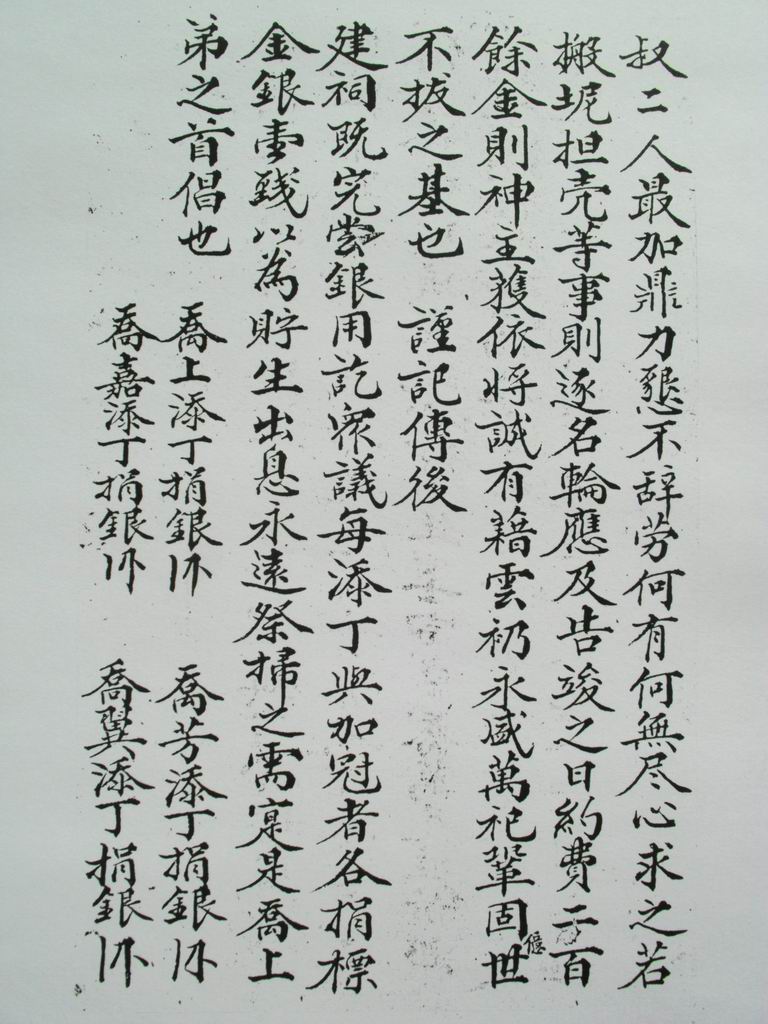 叔二人最加鼎力懇不辞劳何有何無尽心求之若
搬坭担壳等事則逐名輪應及告竣之日約費二百
餘金則神主獲依将誠有藉雲礽永盛萬祀鞏固世
不拔之基也　謹記傳後
建祠既完尝銀用訖衆議每添丁與加冠者各捐標
金銀壹錢以為貯生出息永遠祭掃之需寔是喬上
弟之首倡也
喬上添丁捐銀
喬芳添丁捐銀
喬嘉添丁捐銀
喬翼添丁捐銀